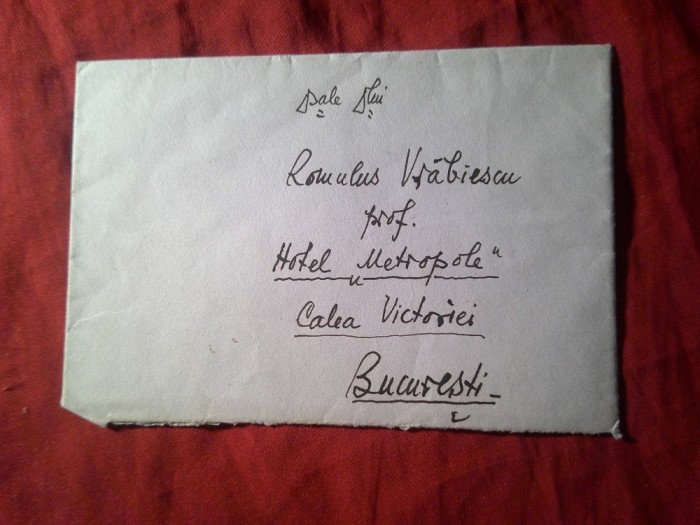 Dsale Dlui
Romulus Vrăbiescu
prof.
Hotel „Metropole"
Calea Victoriei
Bucureşti-